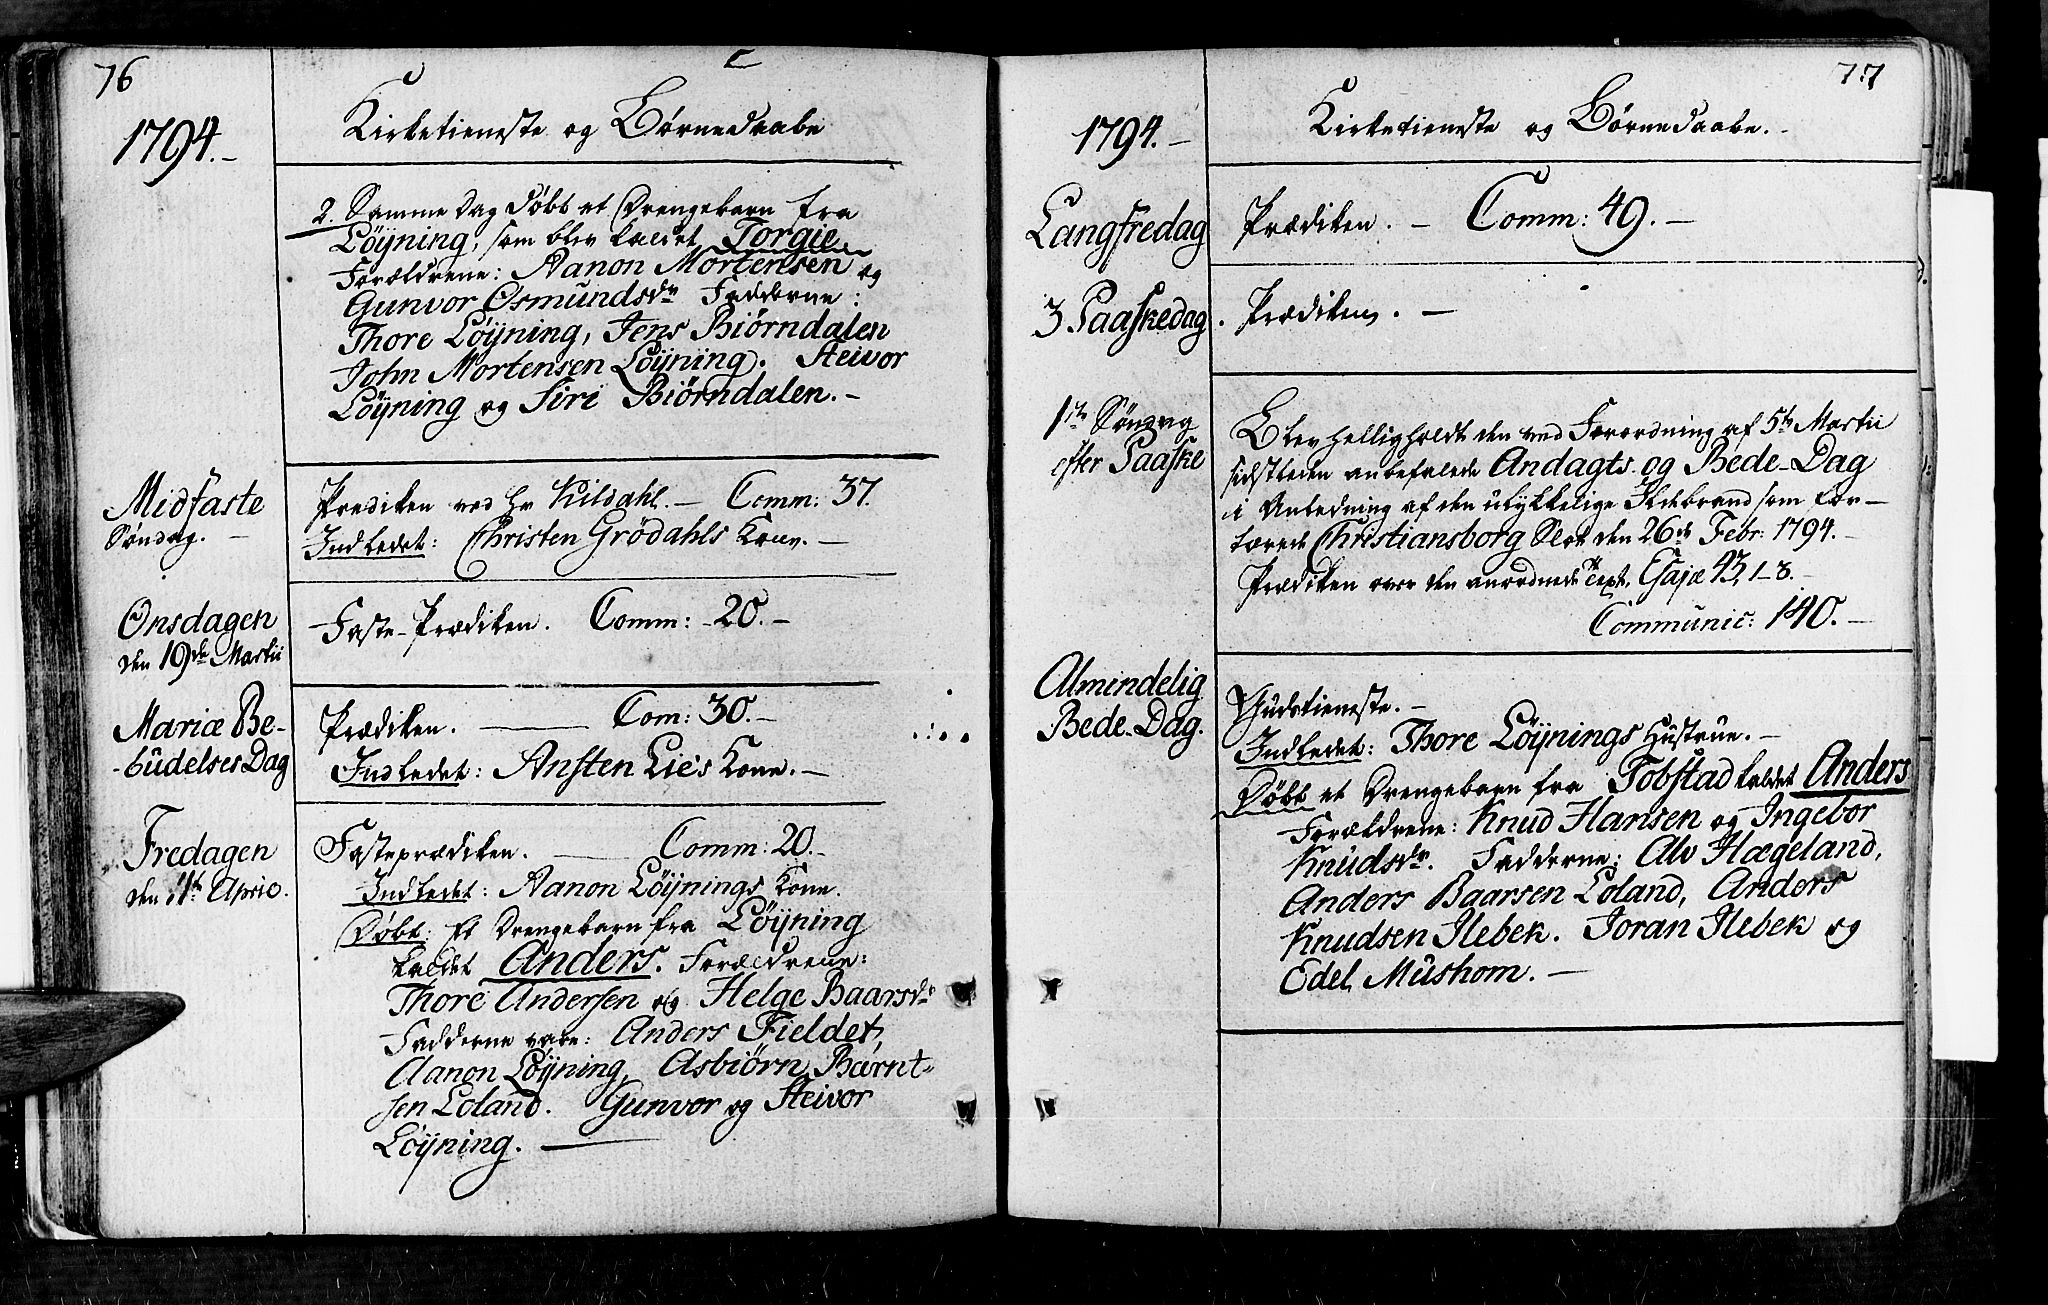 76
1794.-
Kirketieneste og Børnedaabe
2. Samme Dag døbt et Drengebarn fra
Løyning, som blev kaldet Torgie.
Forældrene: Aanon Mortensen og
Gunvor Osmundsdr Fadderne:
Thore Løyning, Jens Biørndalen
John Mortensen Løyning. Steivor
Løyning og Siri Biørndalen.-
Midfaste
Søndag. -
Prediken ved Hr Kildahl. - Comm: 37.
Indledet: Christen Grødahls Kone. -
Onsdagen
den 19de Martii
Faste-Prædiken. Comm: 20.-
Mariæ Be-
-budelses Dag
Prædiken. Com: 30.-
Indledet: Ansten Lie's Kone. -
Fredagen
den Aprio.
Fasteprædiken. Comm: 20.-
Indledet: Aanon Løynings Kone.
Døbt: Et Drengebarn fra Løyning
kaldet Anders. Forældrene:
Thore Andersen og Helge Baarsdr
Fadderne vare: Anders Fieldet,
Aanon Løyning, Asbiørn Bærnt-
sen Loland. Gunvor og Steivor
Løyning.
77
1794.-
Kirketieneste og Børnedaabe.-
Langfredag
Prædiken. - Comm: 49.-
3 Paaskedag.
Prædiken. -
1te Søndag
efter Paaske
Blev helligholdt den ved Forordning af 5te Martii
sidstleden anbefalede Andagts- og Bede-Dag
i Anledning af den ulykkelige Ildebrand som for-
tærede Christiansborg Slot den 26de Febr: 1794.-
Prædiken over den anordnede Text, Esajæ 43, 1-3.-
Communic: 140.-
Almindelig
Bede-Dag.
Gudstieneste.-
Indledet: Thore Løynings Hustrue.-
Døbt et Drengebarn fra Tobstad kaldet Anders
Forældrene: Knud Hansen og Ingebor
Knudsdr. Fadderne: Alv Hægeland,
Anders Baarsen Loland, Anders
Knudsen Ilebek. Joran Ilebek og
Edel Mushom. -